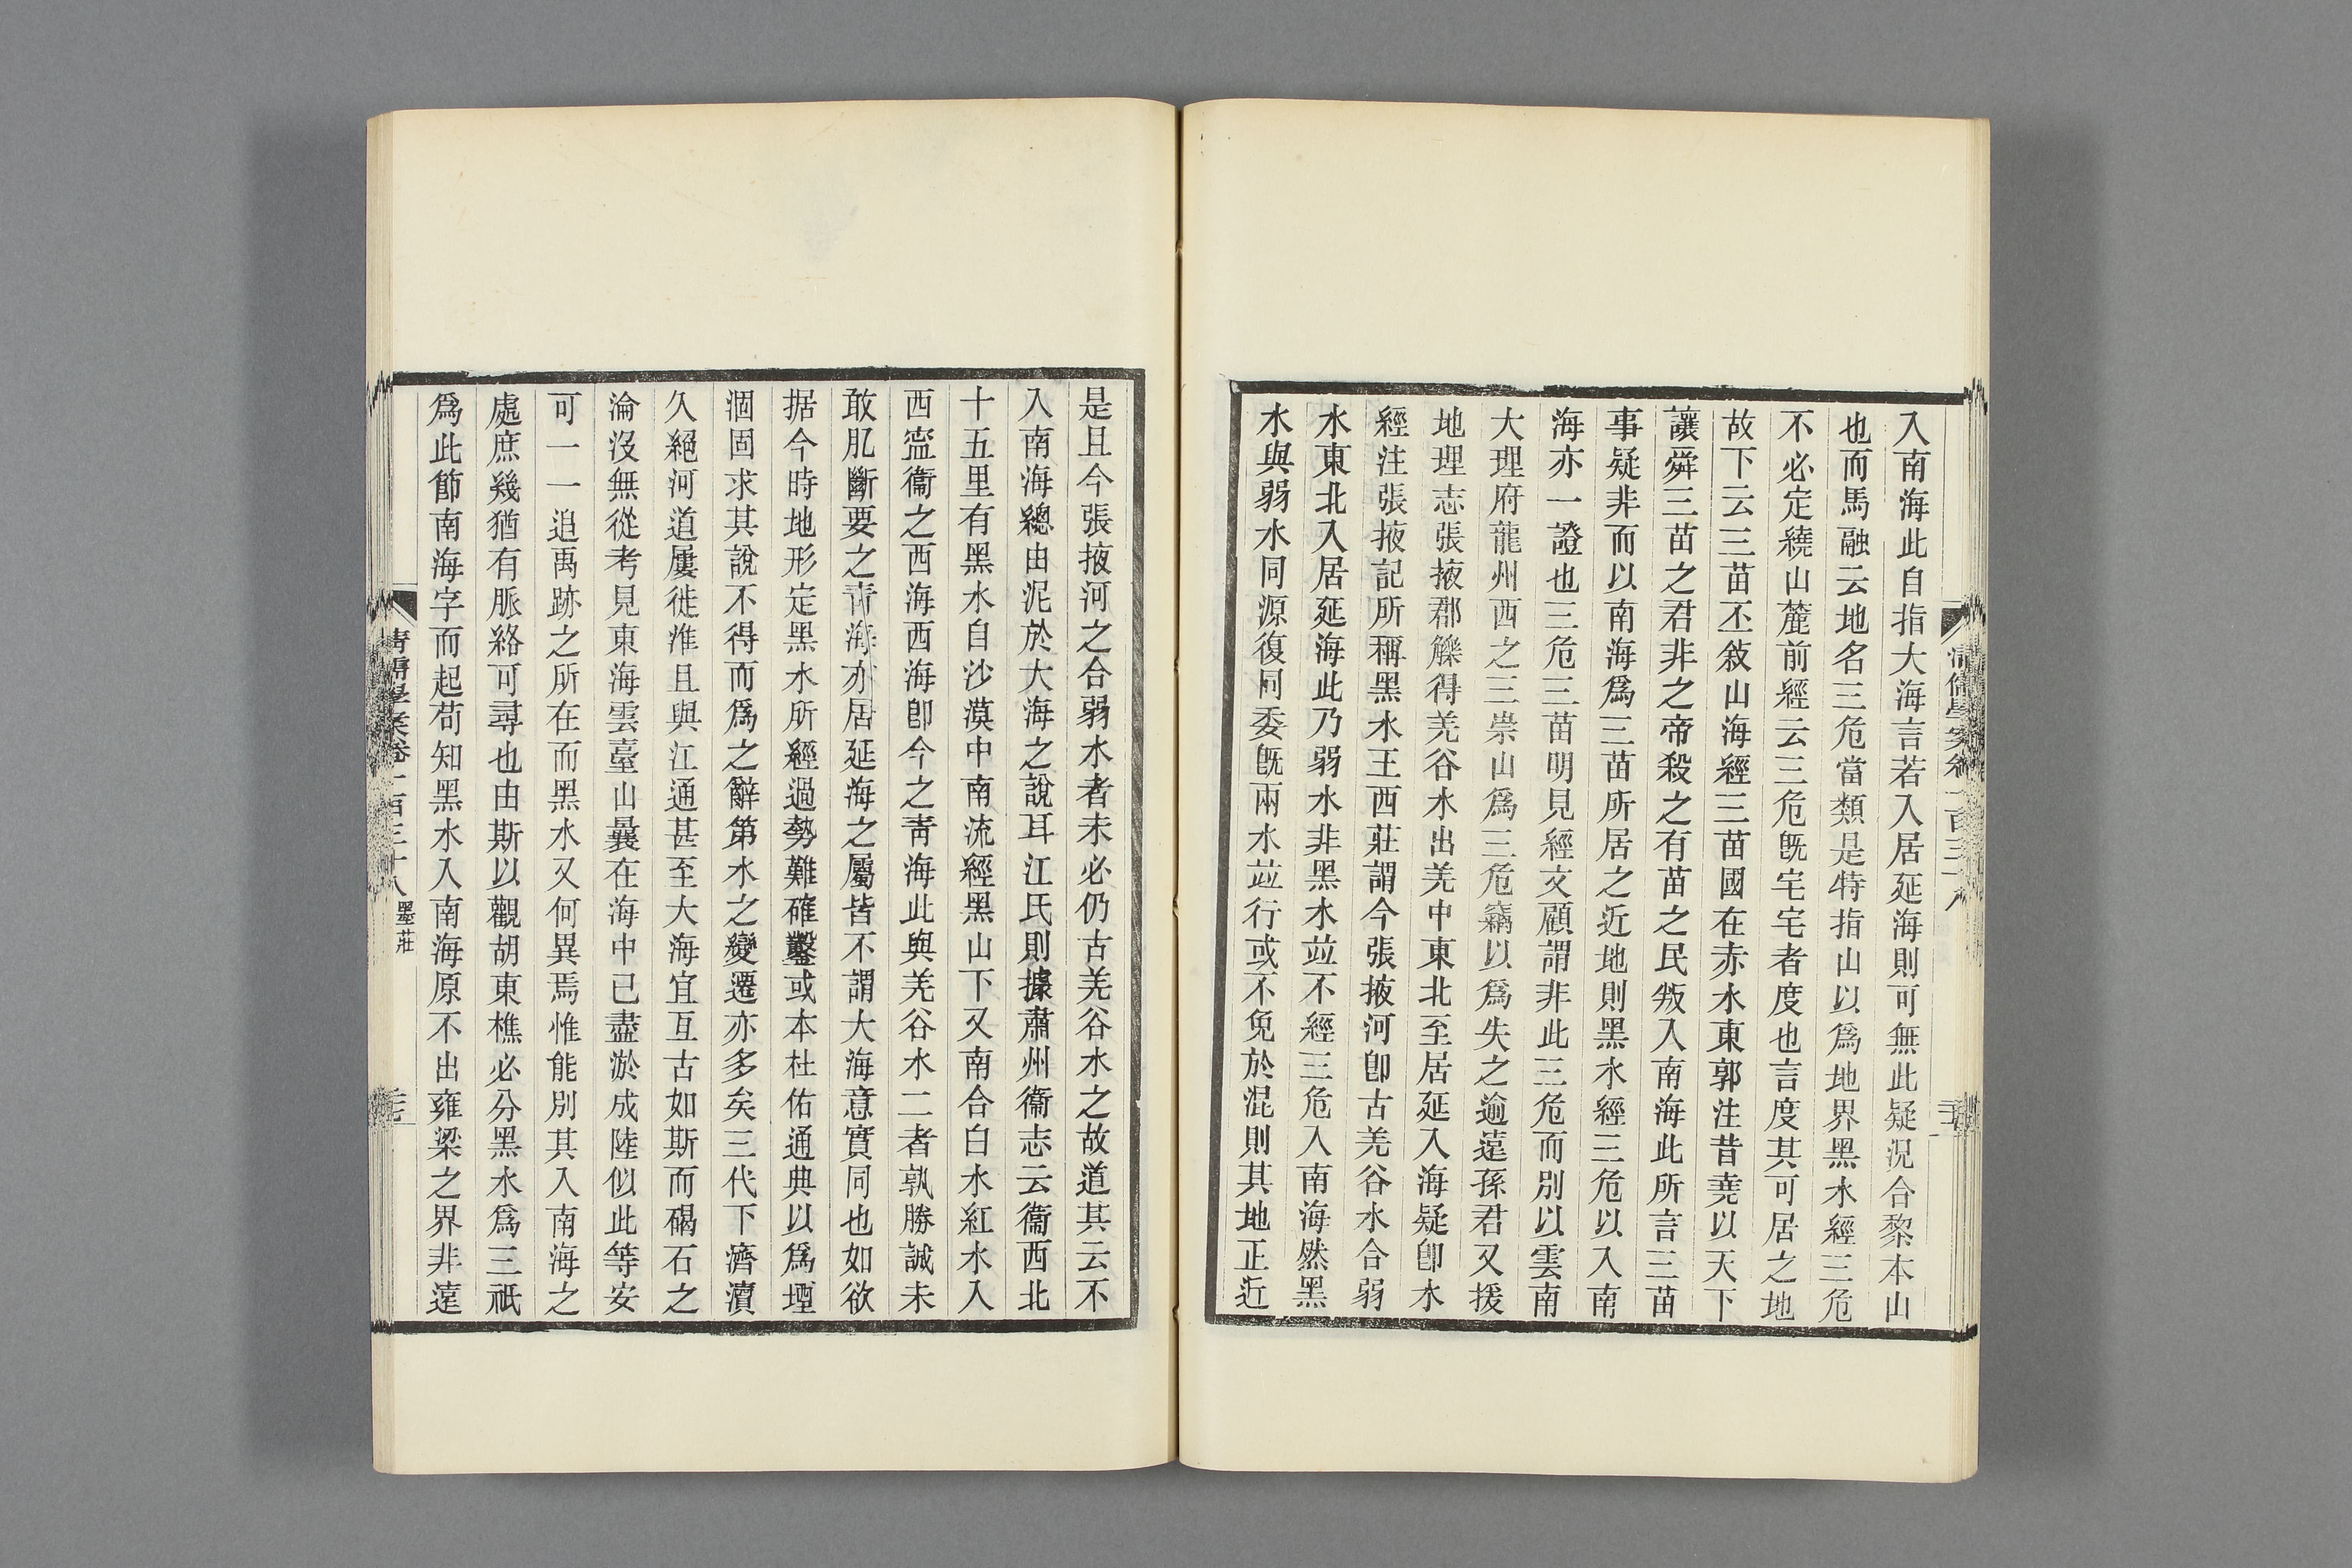 入南海此自指大海言若入居延海則可無此疑況合黎本山
也而馬融云地名三危當類是特指山以爲地界黑水經三危
不必定繞山麓前經云三危旣宅宅者度也言度其可居之地
故下云三苗丕敘山海經三苗國在赤水東郭注昔堯以天下
讓舜三苗之君非之帝殺之有苗之民叛入南海此所言三苗
事疑非而以南海爲三苗所居之近地則黑水經三危以入南
海亦一證也三危三苗明見經文顧謂非此三危而別以雲南
大理府龍州西之三崇山爲三危竊以爲失之逾遠孫君又援
地理志張掖郡觻得羌谷水出羌中東北至居延入海疑卽水
經注張掖記所稱黑水王西莊謂今張掖河卽古羌谷水合弱
水東北入居延海此乃弱水非黑水竝不經三危入南海然黑
水與弱水同源復同委旣兩水竝行或不免於混則其地正近
是且今張掖河之合弱水者未必仍古羌谷水之故道其云不
入南海總由泥於大海之說耳江氏則據肅州衞志云衞西北
十五里有黑水自沙漠中南流經黑山下又南合白水紅水入
西寍衞之西海西海卽今之靑海此與羌谷水二者孰勝誠未
敢肊斷要之靑海亦居延海之屬皆不謂大海意實同也如欲
据今時地形定黑水所經過勢難確鑿或本杜佑通典以爲堙
涸固求其說不得而爲之辭第水之變遷亦多矣三代下濟瀆
久絕河道屢徙淮且與江通甚至大海宜亙古如斯而碣石之
淪沒無從考見東海雲臺山曩在海中已盡淤成陸似此等安
可一一追禹跡之所在而黑水又何異焉惟能別其入南海之
處庶幾猶有脈絡可尋也由斯以觀胡東樵必分黑水爲三祇
爲此節南海字而起苟知黑水入南海原不出雍梁之界非遠
清儒學案卷一百三十八 墨莊